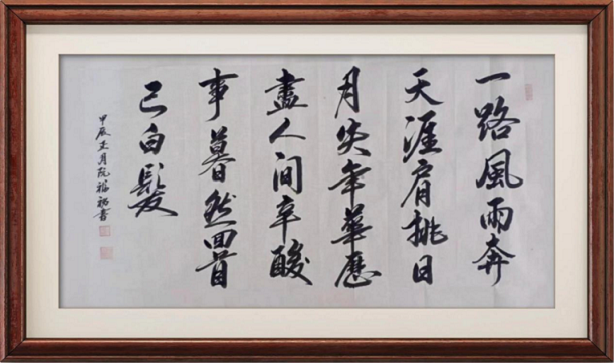 一路風雨奔
天涯肩挑日
月笑年華歷
盡人間辛酸
事暮然回首
已白髮
甲辰 月阮福 書